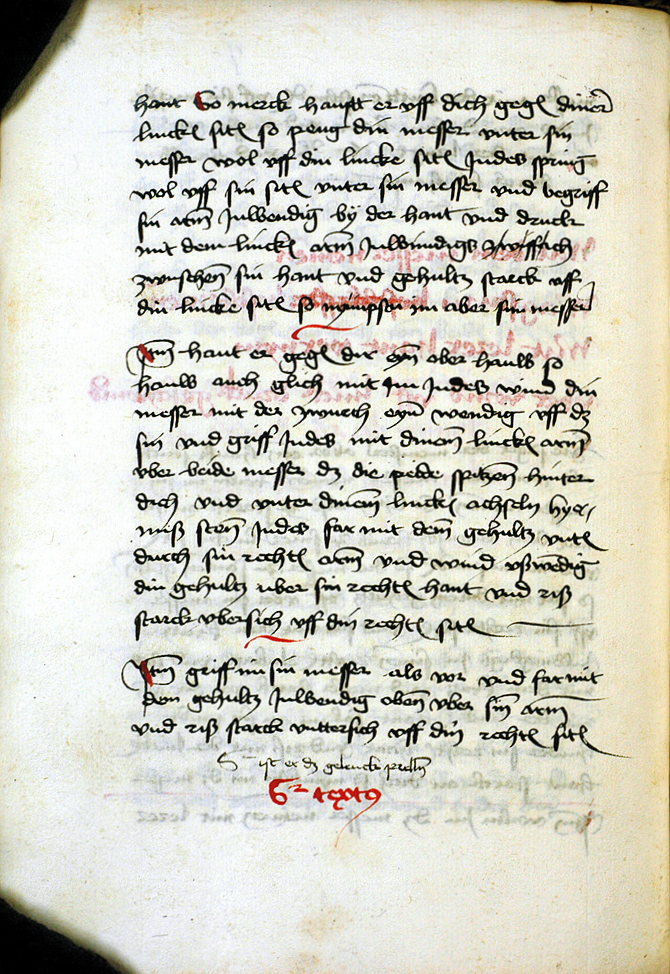 hant So merck hauſtt er vff dich gegen diner
lincken siten so peug din messer vnter sin
messer wol vff din lincke siten Indes spring
wol vff sin siten vnter sin messer vnd begriff
sin arm Inwendig by der hant vnd druck
mit dem lincken arm Inwindigs
zwuschenn sin hant vnd gehultz starck vff
din lincke siten so nympstu im aber sin messer
Item haut er gegen dir eyn ober hauw so
hauw auch glich mit Im Indes wind din
messer mit der zwirch eyn wendig vff dz
sin vnd griff Indes mit dinem lincken arm
vber beide messer dz die peide spitzenn hinter
dich vnd vnter dinem lincken achseln
uß steen Indes far mit dem gehultz vnten
durch sin rechten arm vnd wind vßwendig
din gehultz uber sin rechten hant vnd riß
starck vbersich vff din rechten siten
Item griff im sin messer als vor vnd far mit
den gehultz Inwendig oben vber sin arm
vnd riß starck vnttersich vff din rechten siten
ist er dz gelenck prellen
textus